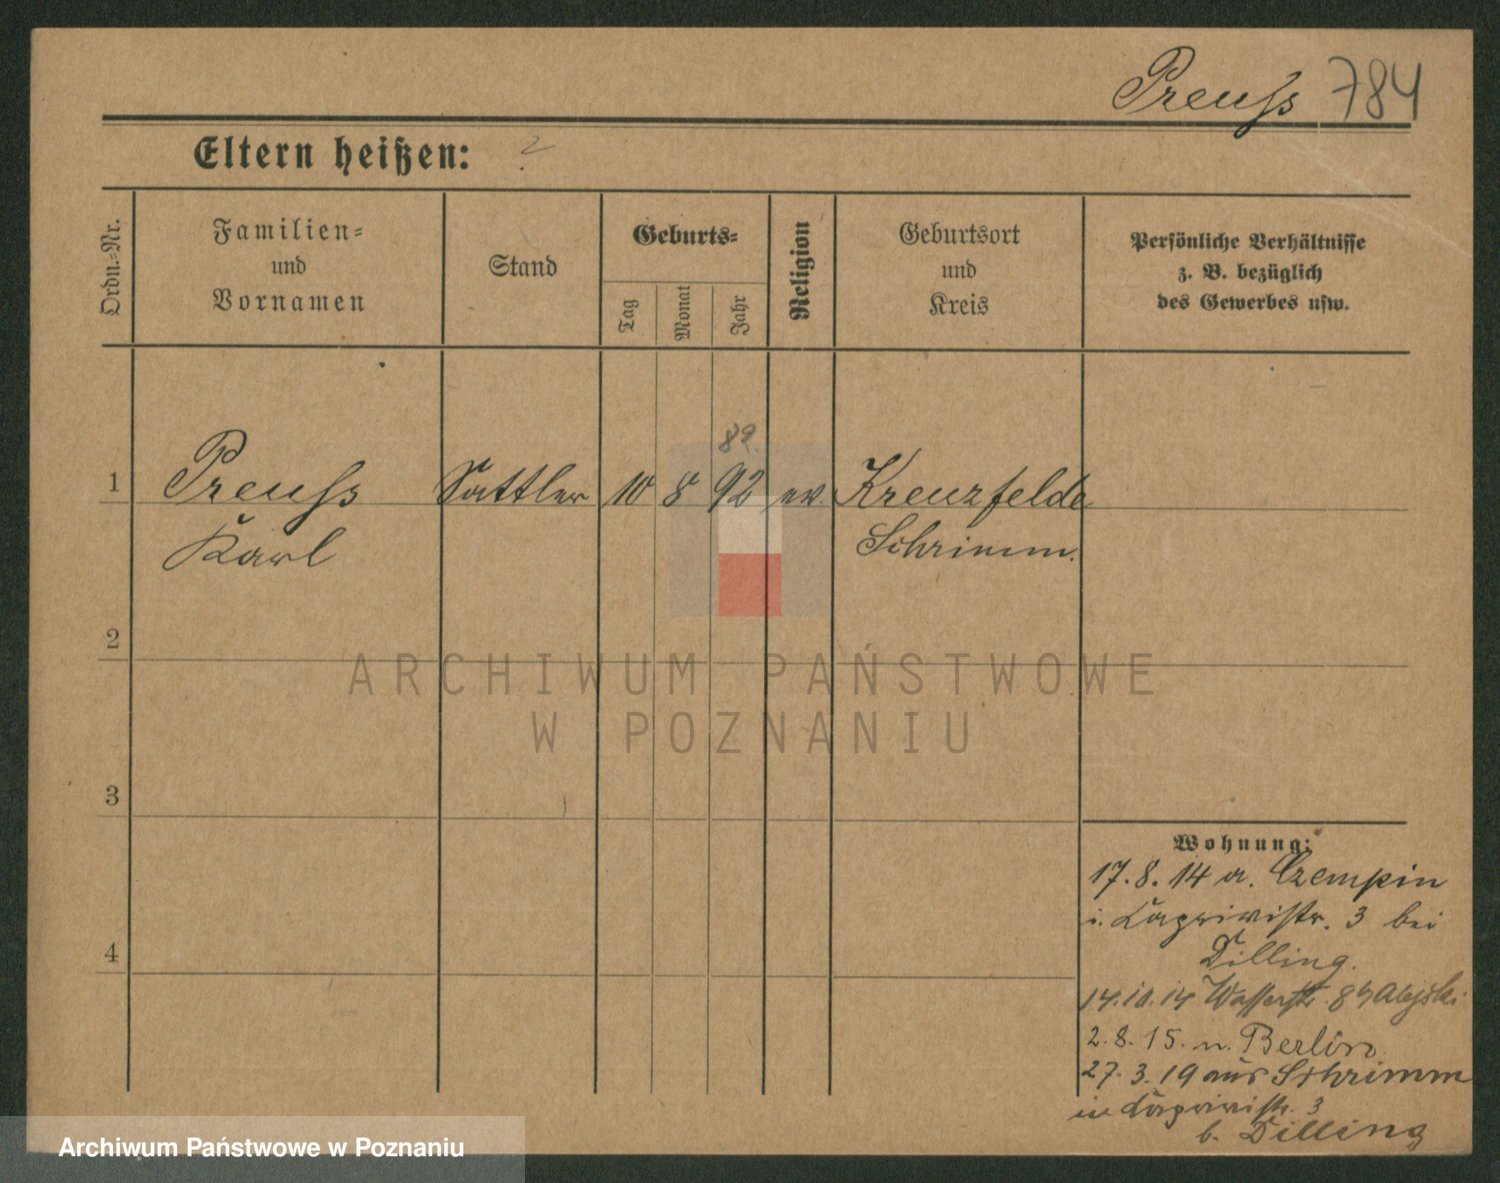 Preuſs 784
Eltern heißen: ?
Ordn.-Nr.
Familien-
und
Vornamen
Stand
Geburts-
Tag
Monat
Jahr
Religion
Geburtsort
und
Kreis
Persönliche Verhältnisse
z. B. bezüglich
des Gewerbes usw.
82.
1 Preuſs Sattler 10 8 92 ev. Kreuzfelde
Karl Schrimm.
2
3
4
ARCHIWUM PAŃSTWOWE
W POZNANIU
Wohnung:
17. 8. 14 a. Czempin
i. Caprivistr. 3 bei
Dilling.
14. 10. 14 Wasserstr. 8
2. 8. 15. n. Berlin
27. 3. 19 aus Schrimm
in Caprivistr. 3
b. Dilling
Archiwum Państwowe w Poznaniu